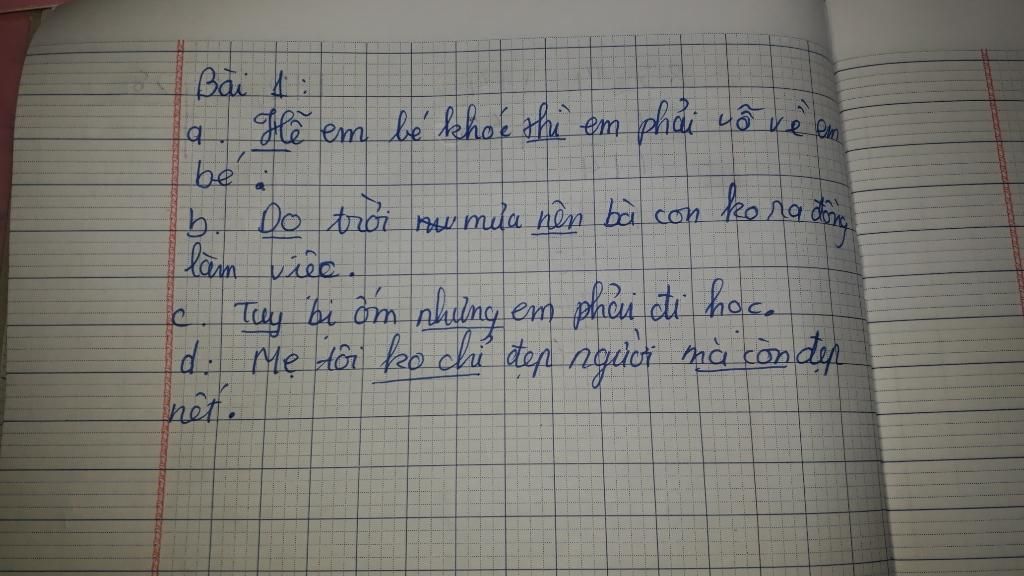 Bài 1:
a. Hễ em bé khóc thì em phải vỗ về em
bé.
b. Do trời mưa nên bà con ko ra đồng
làm việc.
c. Tuy bị ốm nhưng em phải đi học.
d. Mẹ tôi ko chỉ đẹp người mà còn đẹp
nết.